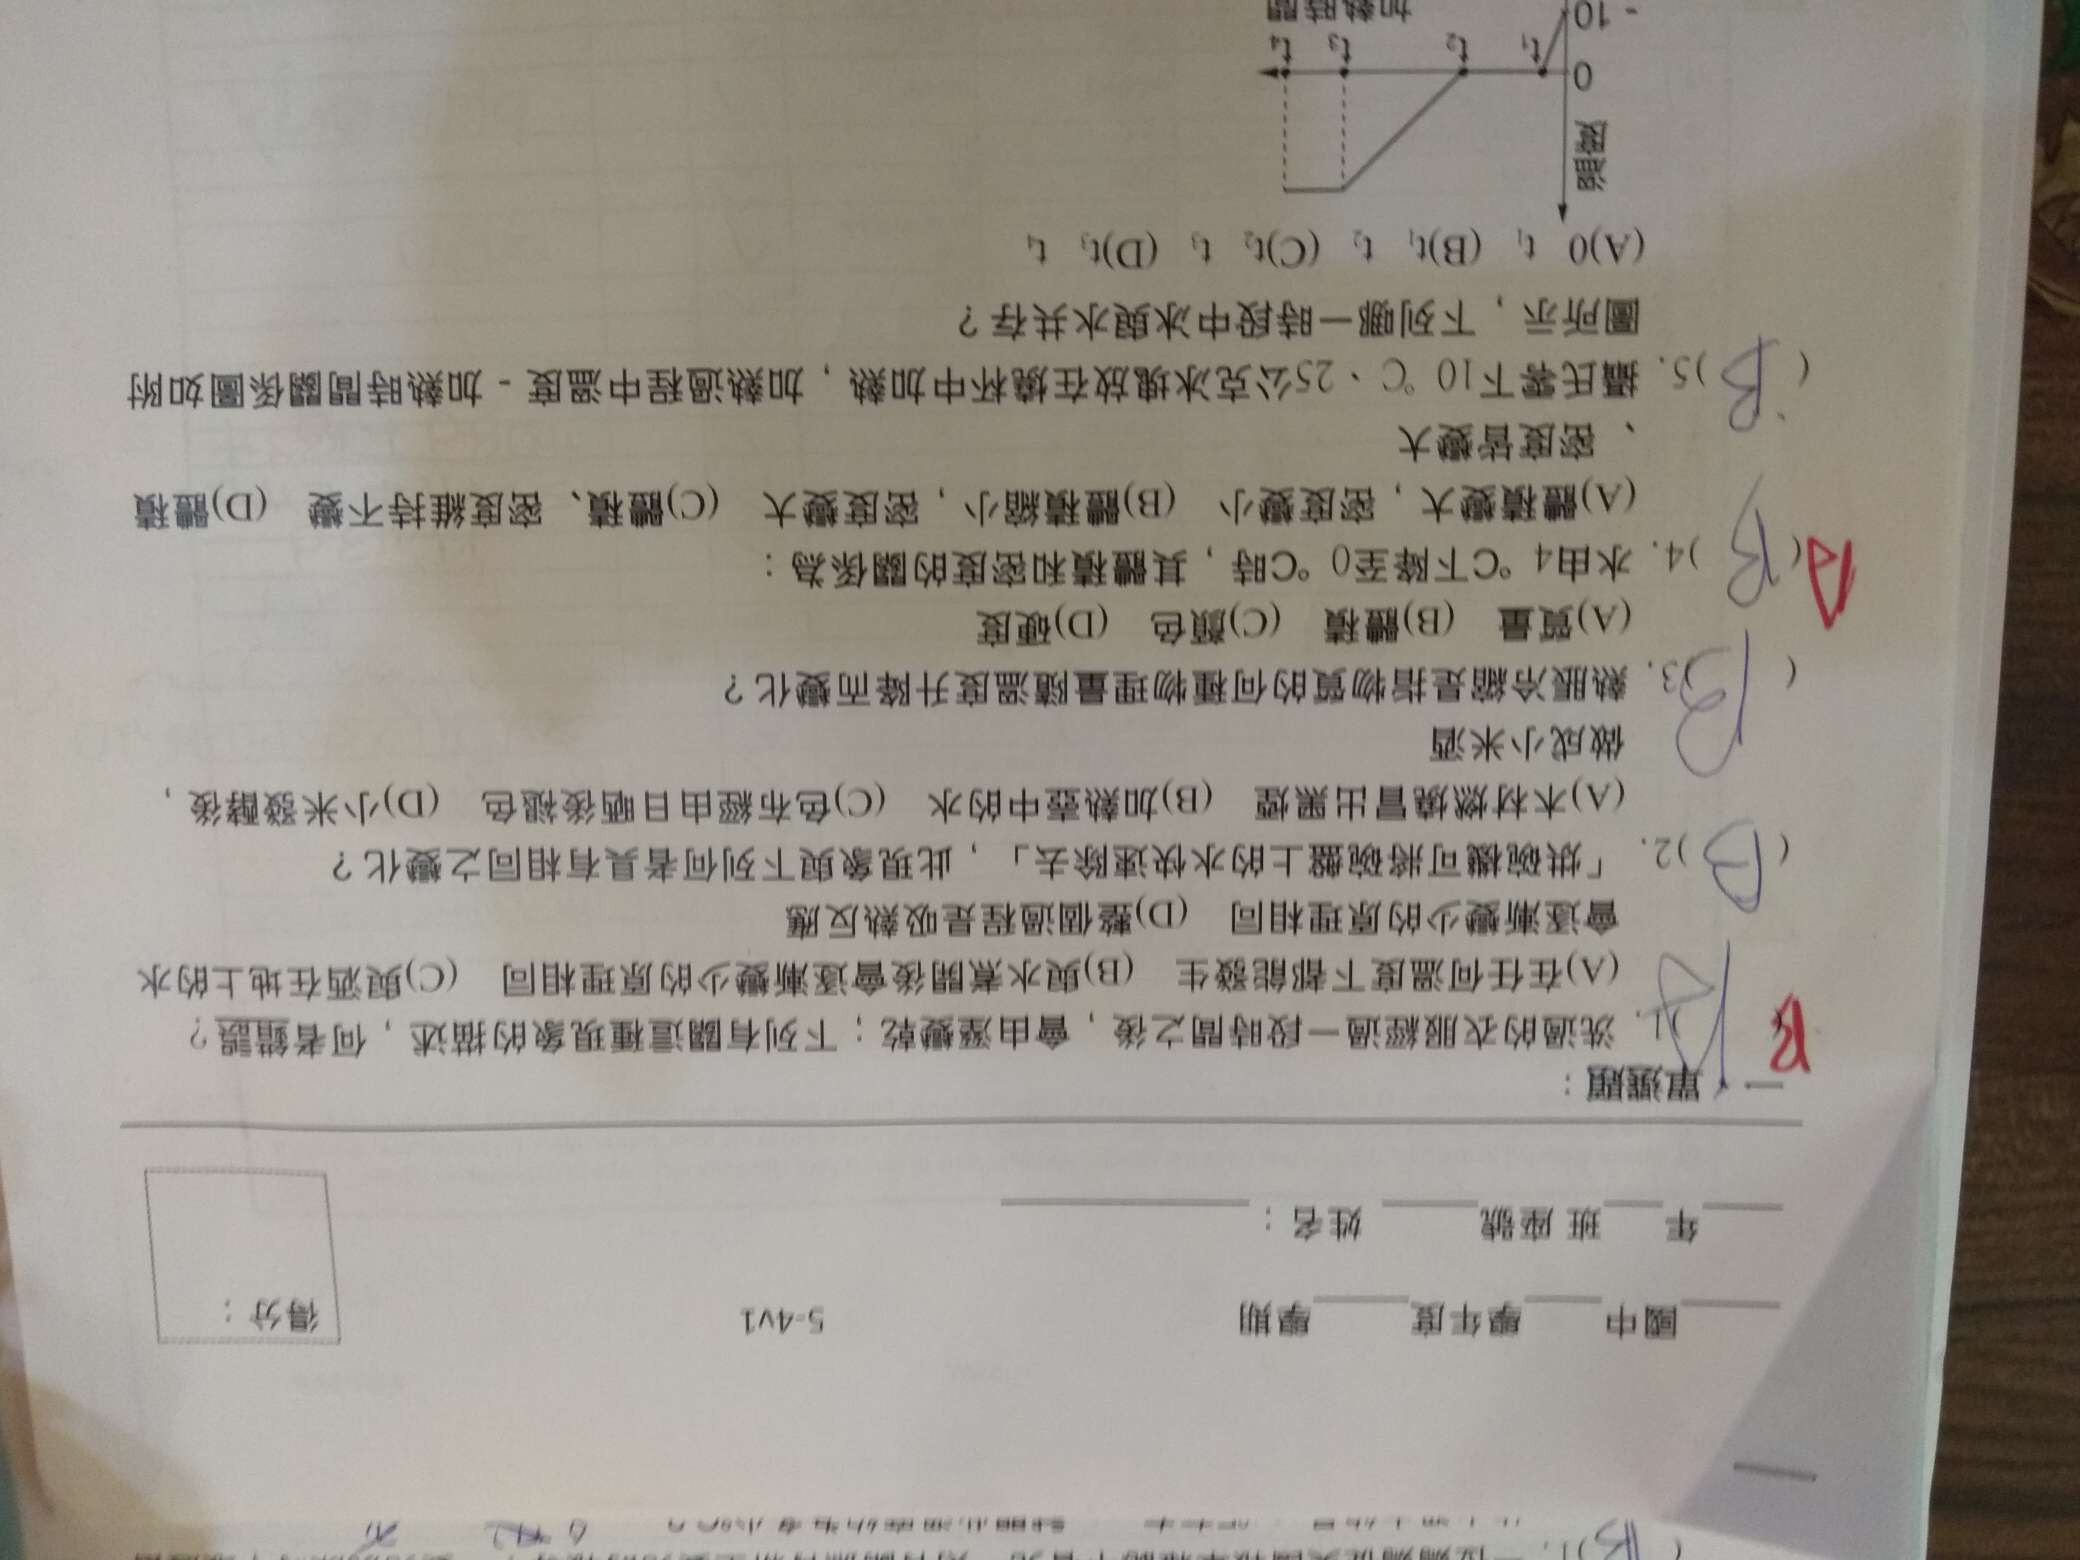 國中 學年度 學期 5-4v1 得分：
年 班 座號 姓名：
一 單選題：
B A 1. 洗過的衣服經過一段時間之後，會由溼變乾；下列有關這種現象的描述，何者錯誤？
(A)在任何溫度下都能發生 (B)與水煮開後會逐漸變少的原理相同 (C)與洒在地上的水
會逐漸變少的原理相同 (D)整個過程是吸熱反應
(B)2. 「烘碗機可將碗盤上的水快速除去」，此現象與下列何者具有相同之變化？
(A)木材燃燒冒出黑煙 (B)加熱壺中的水 (C)色布經由日晒後褪色 (D)小米發酵後，
做成小米酒
(B)3. 熱脹冷縮是指物質的何種物理量隨溫度升降而變化？
(A)質量 (B)體積 (C)顏色 (D)硬度
A (B)4. 水由4 ℃下降至0 ℃時，其體積和密度的關係為：
(A)體積變大，密度變小 (B)體積縮小，密度變大 (C)體積、密度維持不變 (D)體積
、密度皆變大
(B)5. 攝氏零下10 ℃、25公克冰塊放在燒杯中加熱，加熱過程中溫度－加熱時間關係圖如附
圖所示，下列哪一時段中冰與水共存？
(A)0 t₁ (B)t₁ t₂ (C)t₂ t₃ (D)t₃ t₄
溫度
0 t₁ t₂ t₃ t₄
-10 加熱時間